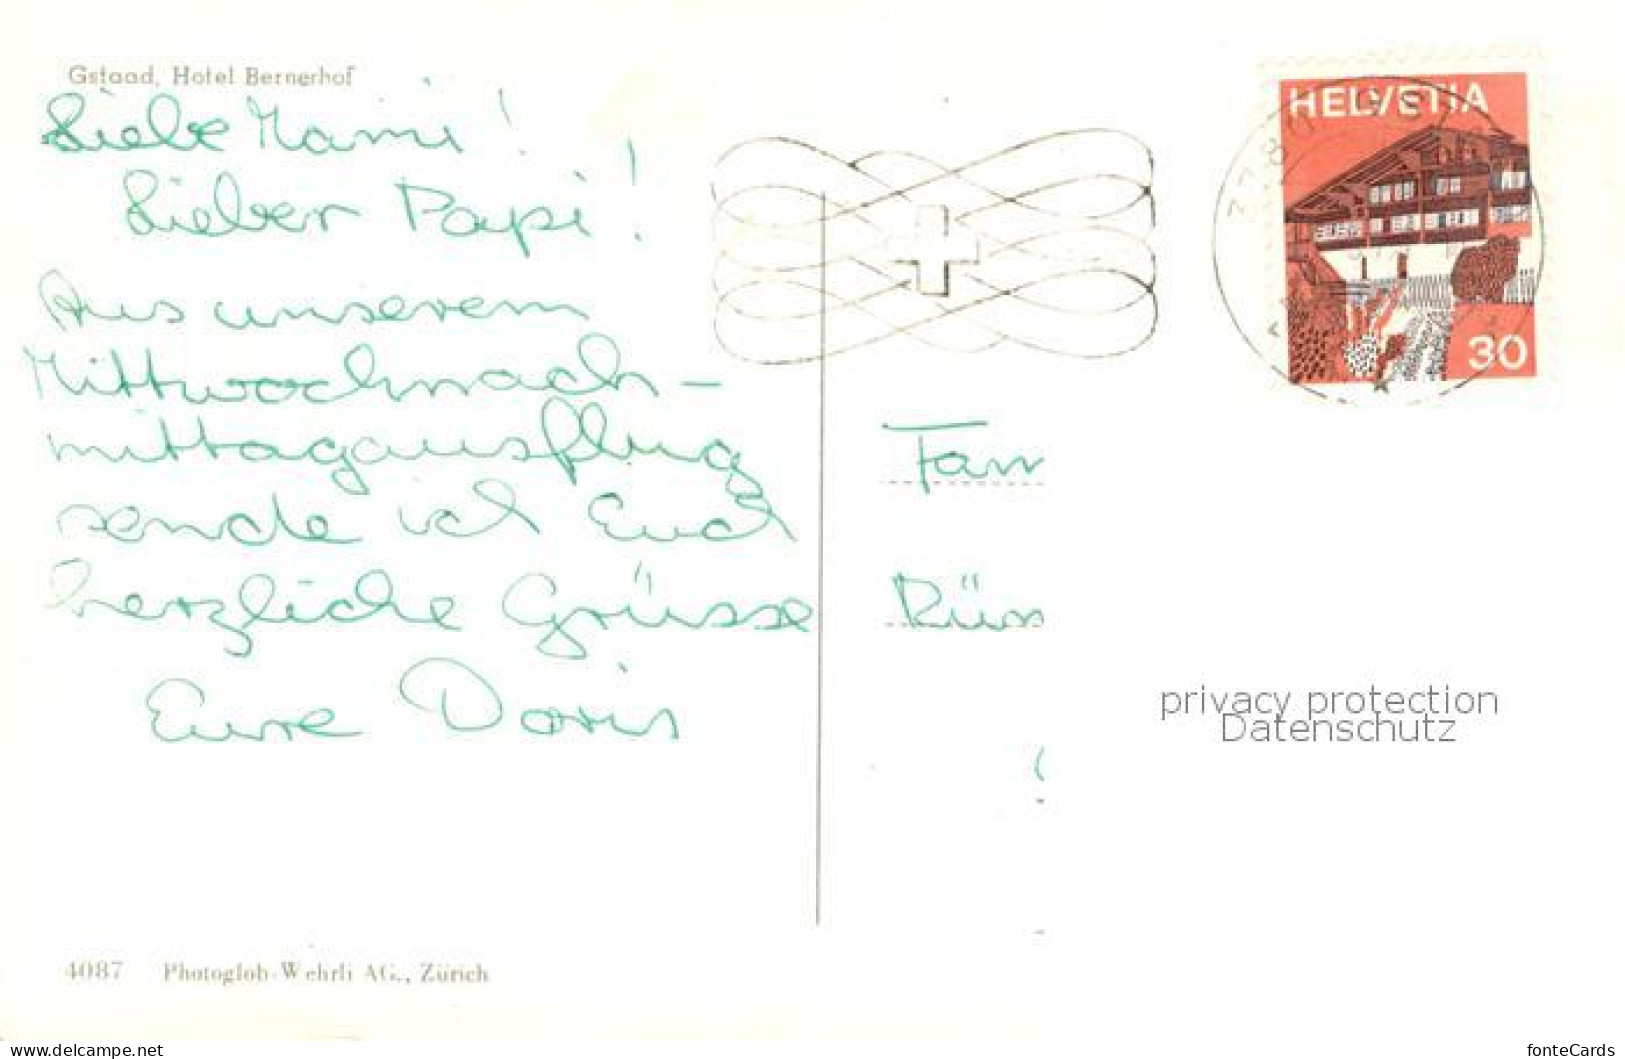 Gstaad, Hotel Bernerhof
Liebe Mami!
Lieber Papi!
Aus unserem
Mittwochnach-
mittagausflug
sende ich Euch
herzliche Grüsse
Eure Doris
4087 Photoglob-Wehrli AG., Zürich
HELVETIA
30
Fam
Rüs
privacy protection
Datenschutz
www.delcampe.net
fonteCards